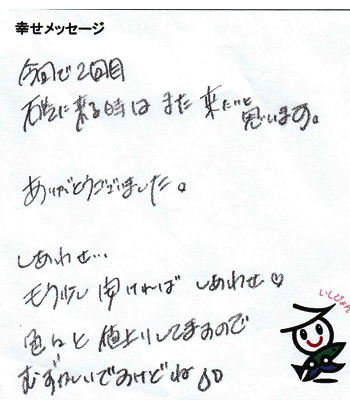 幸せメッセージ
今回で2回目
石垣に来る時は また 来たいと
思います。
ありがとうございました。
しあわせ…
もう少し 安ければ しあわせ♡
色々と 値上りしてますので
むずかしいですけどね
いしじょん